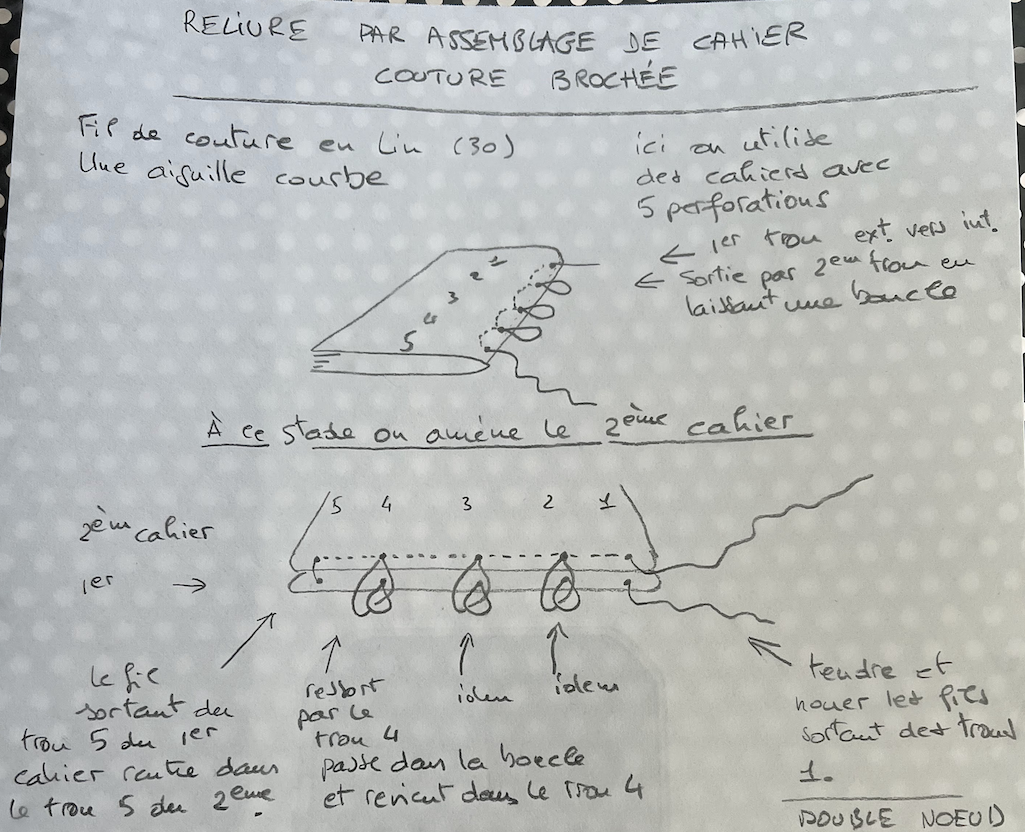 RELIURE PAR ASSEMBLAGE DE CAHIER
COUTURE BROCHÉE
Fil de couture en Lin (30)
Une aiguille courbe
ici on utilise
des cahiers avec
5 perforations
← 1er trou ext. vers int.
← Sortie par 2em trou en
laissant une boucle
1
2
3
4
5
À ce stade on amène le 2ème cahier
5 4 3 2 1
2èm cahier
1er →
le fil
sortant du
trou 5 du 1er
cahier rentre dans
le trou 5 du 2eme.
ressort
par le
trou 4
passe dans la boucle
et revient dans le trou 4
idem
idem
tendre et
nouer les fils
sortant des trous
1.
DOUBLE NOEUD